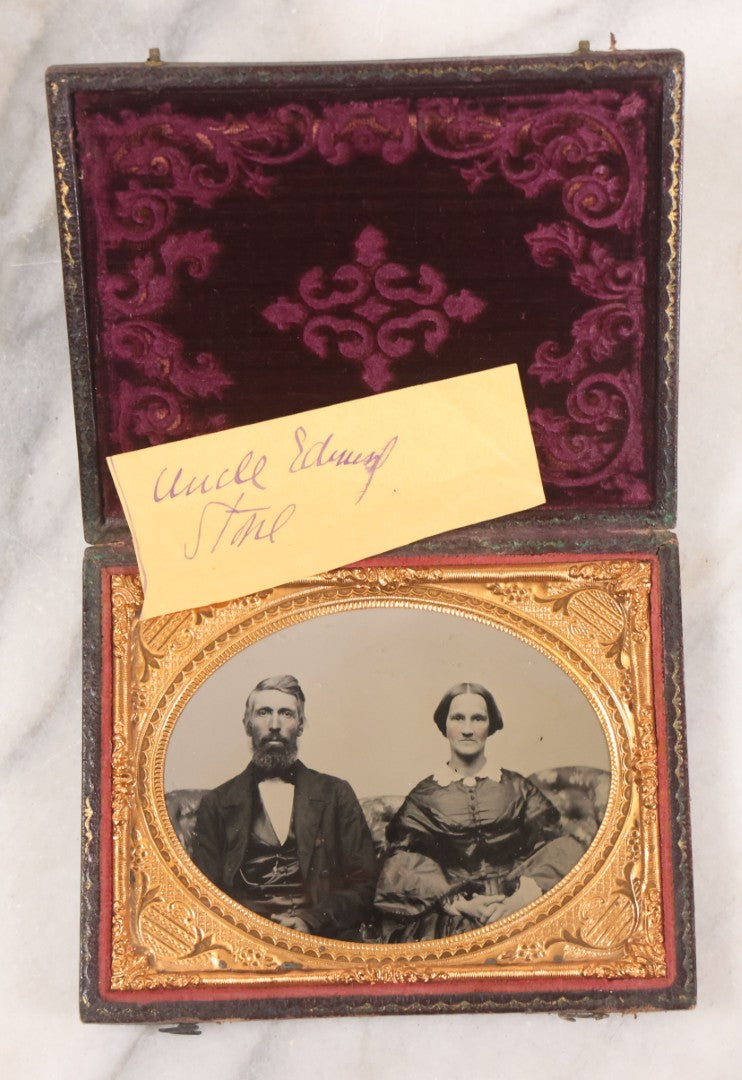 Uncle Edmund
Stone